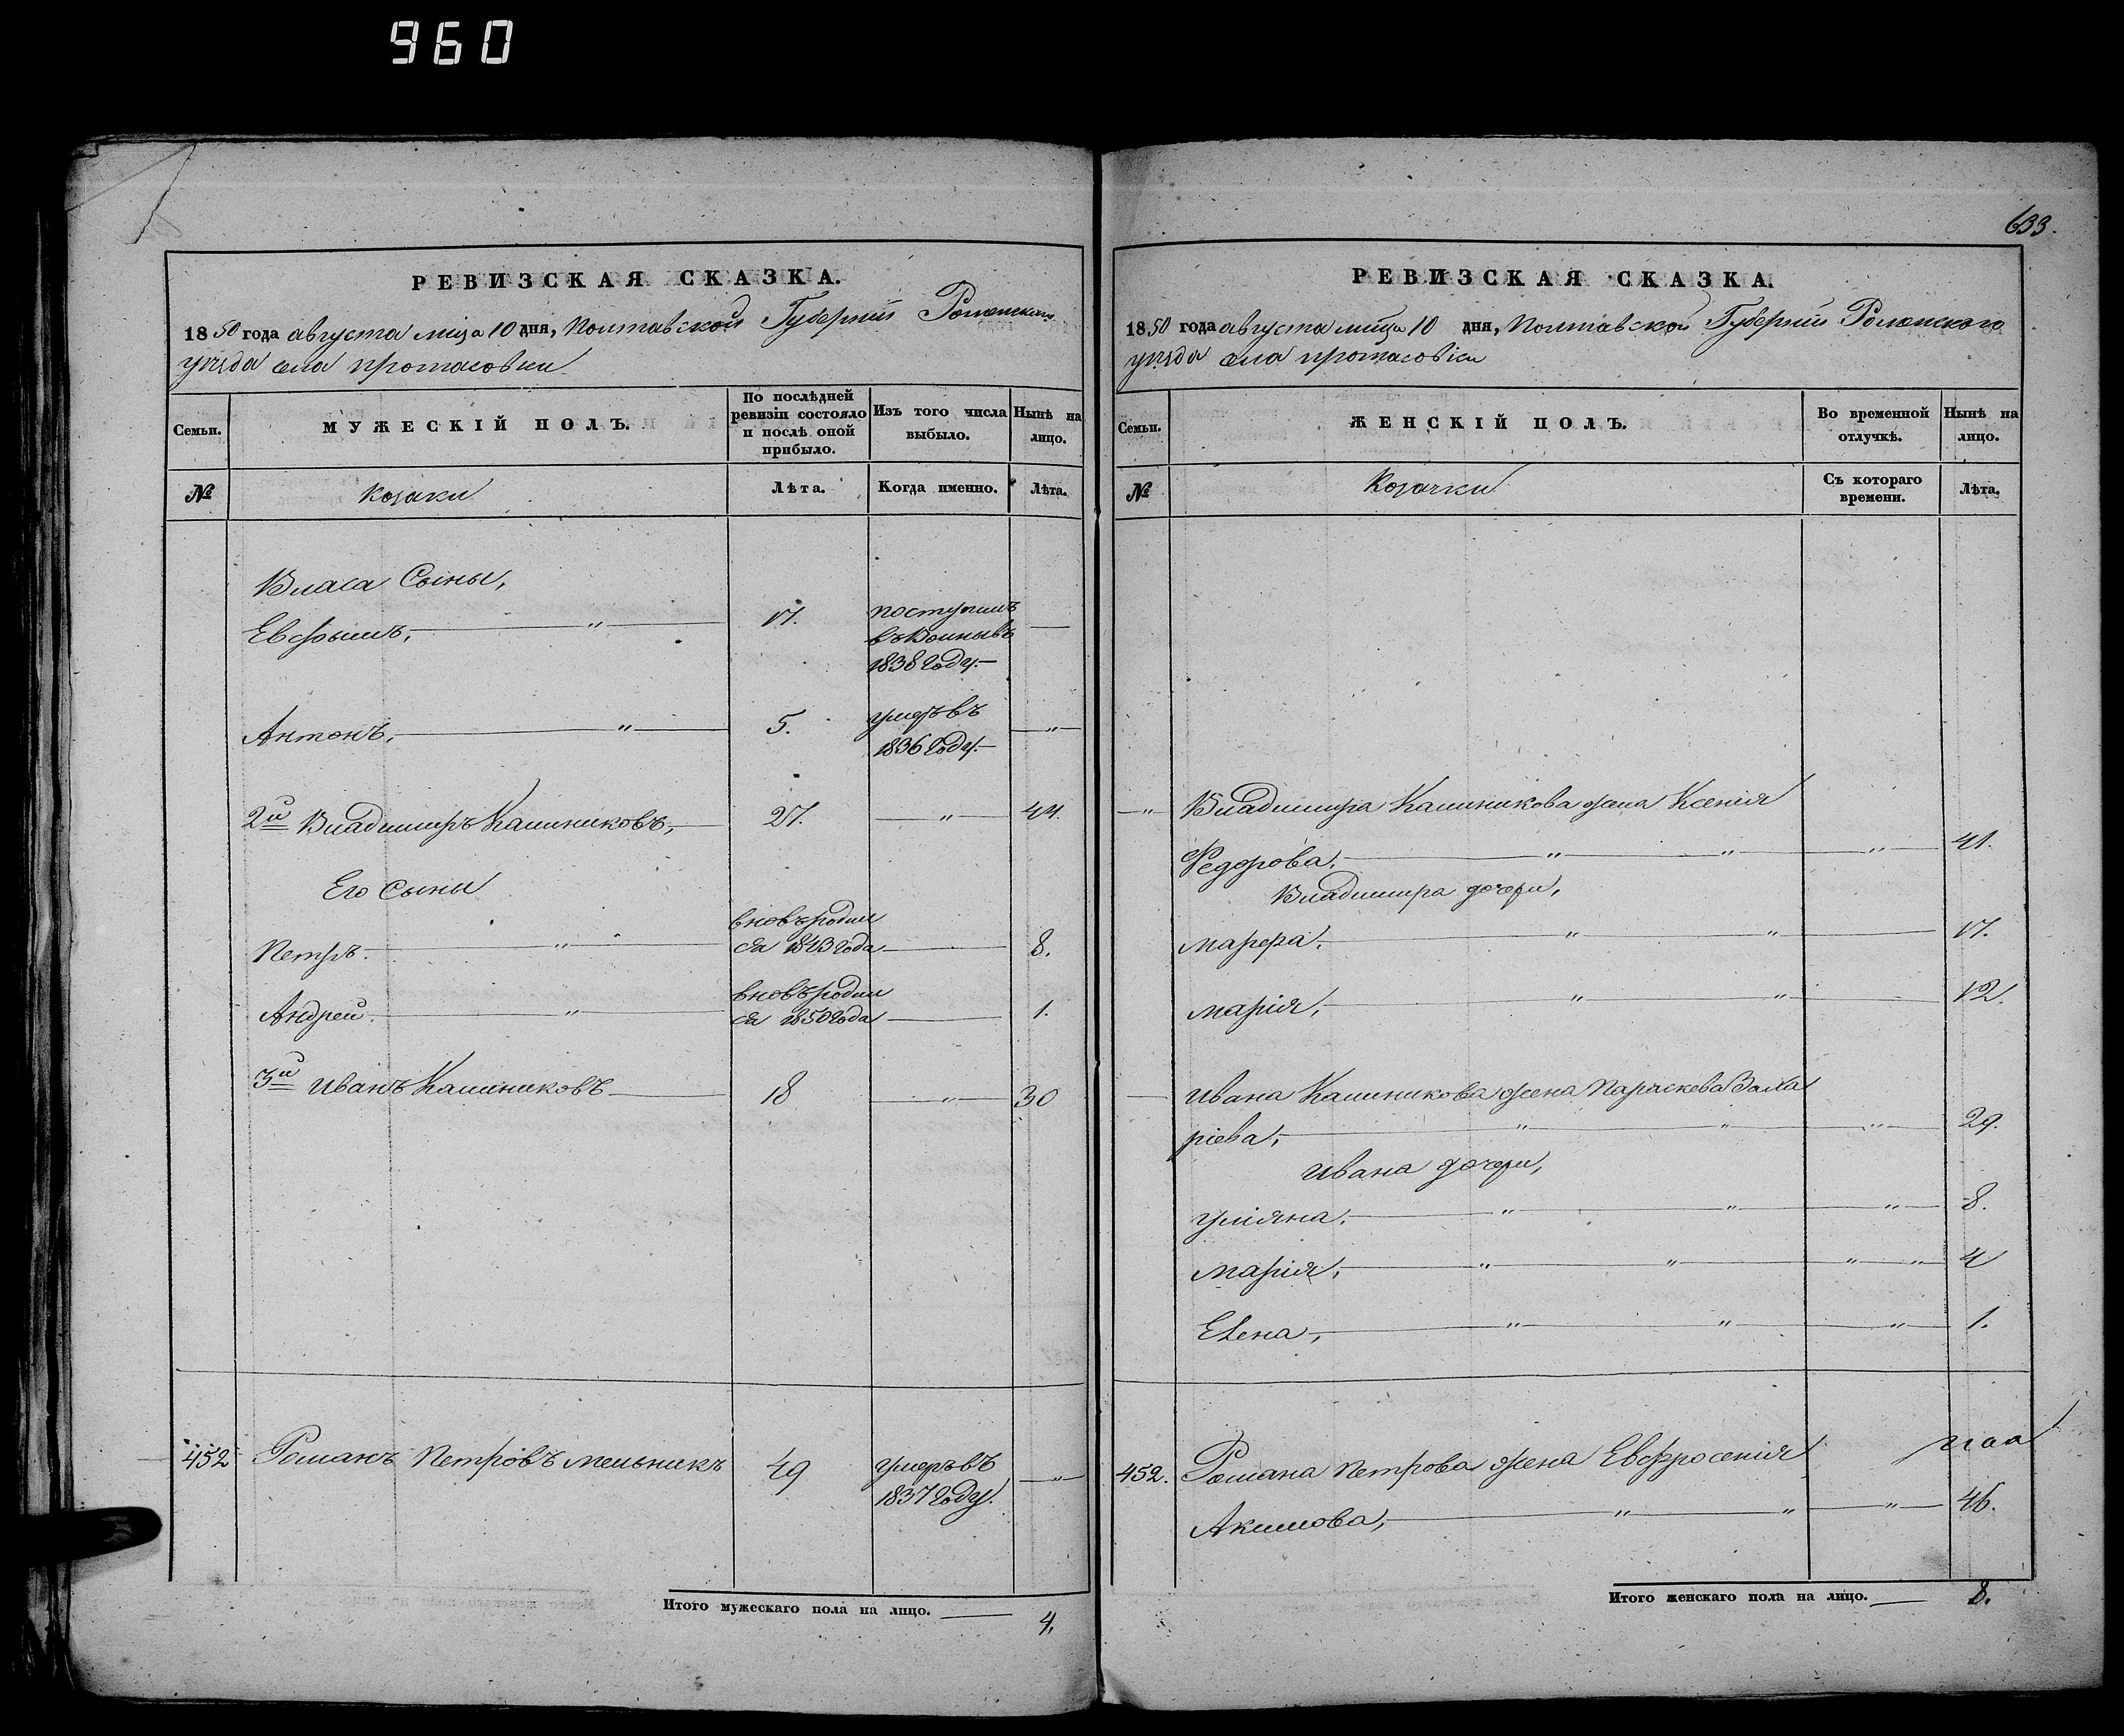 960
РЕВИЗСКАЯ СКАЗКА.
1850 года августа мца 10 дня, Полтавской Губернiи Роменскаго
уезда села протасовки
Семьи.
МУЖЕСКIЙ ПОЛЪ.
По послѣдней
ревизiи состояло
и послѣ оной
прибыло.
Изъ того числа
выбыло.
Нынѣ на
лицо.
№
козаки
Лѣта.
Когда именно.
Лѣта.
Власа Сыны,
Евфимъ, — " — 17. поступилъ
въ Воины въ
1838 Году. —
Антонъ, — " — 5. умеръ въ — " —
1836 Году. —
2й Владимиръ Калиниковъ, — 27. — " — 44.
Его Сыны
Петръ. — " — вновь родил
ся 1843 года — 8.
Андрей. — " — вновь родил
ся 1850 года — 1.
3й Иванъ Калиниковъ — 18 — " — 30
452 Романъ Петровъ мельникъ 49 умеръ въ — " —
1837 Году.
Итого мужескаго пола на лицо. — 4.
633.
РЕВИЗСКАЯ СКАЗКА.
1850 года августа мица 10 дня, Полтавской Губернiи Роменского
уезда села протасовки
Семьи.
ЖЕНСКIЙ ПОЛЪ.
Во временной
отлучкѣ.
Нынѣ на
лицо.
№
Козачки
Съ котораго
времени.
Лѣта.
— " — Владимира Калиникова жена Ксенiя
Федорова, — " — " — " — 41.
Владимира дочери,
марфа, — " — " — 17.
марiя, — " — " — 12.
— Ивана Калиникова жена Параскева Заха
рiева, — " — " — " — 29.
Ивана дочери,
улiяна, — " — " — " — 8.
марiя, — " — " — " — " 4
Елена, — " — " — " — 1.
452. Романа Петрова жена Евфросенiя
Акимова, — " — " — " — 46.
Итого женскаго пола на лицо. — 8.